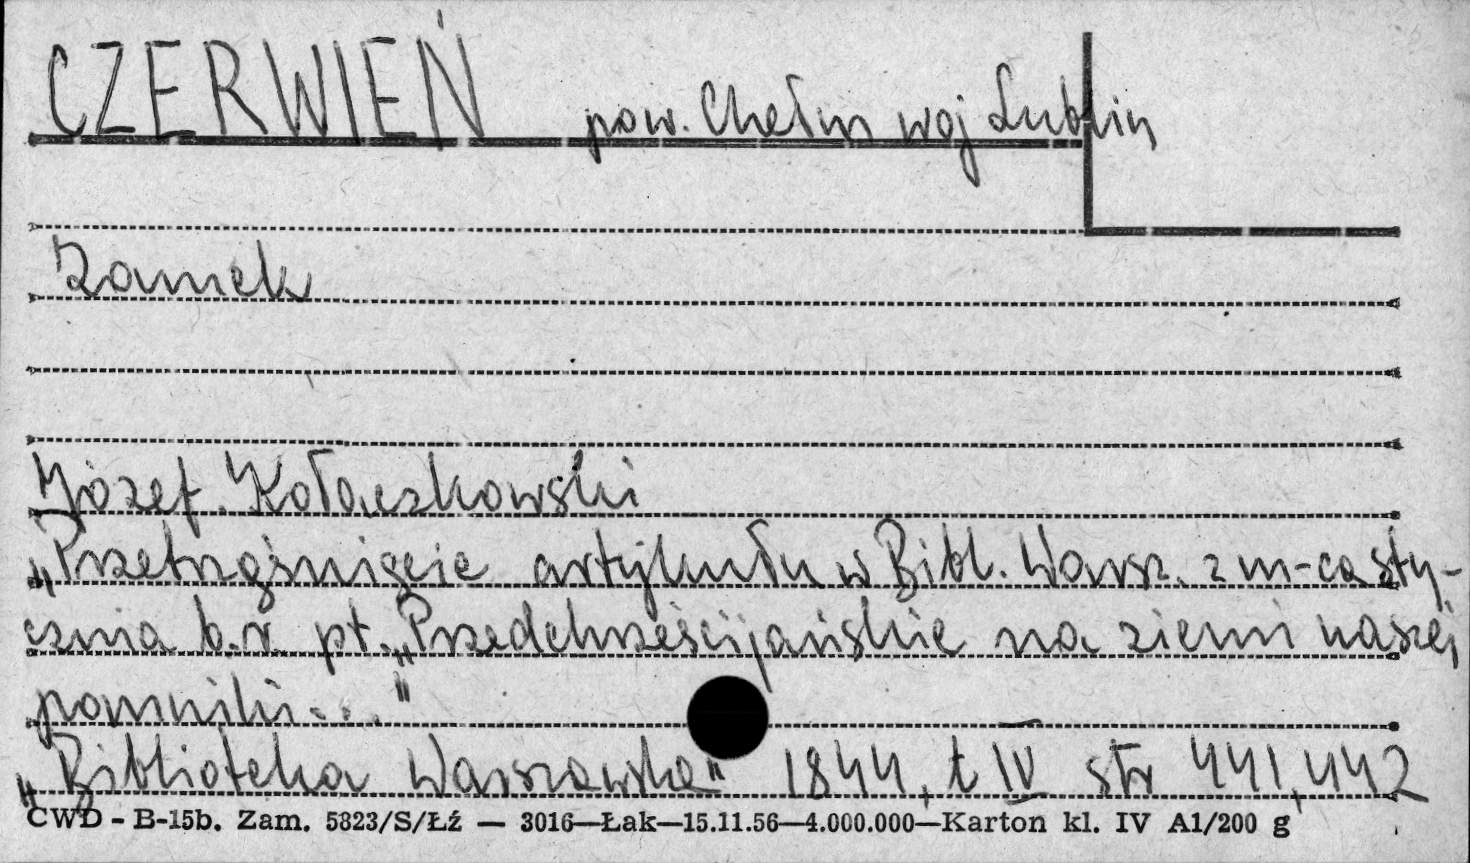 CZERWIEŃ pow. Chełm woj Lublin
Zamek
Józef Kołaczkowski
„Przetrząśnięcie artykułu w Bibl. Warsz. z m-ca sty-
cznia b.r. pt. „Przedchrześcijańskie na ziemi naszej
pomniki..."
„Biblioteka Warszawska" 1844, t IV str 441, 442
CWD - B-15b. Zam. 5823/S/Łź — 3016—Łak—15.11.56—4.000.000—Karton kl. IV A1/200 g